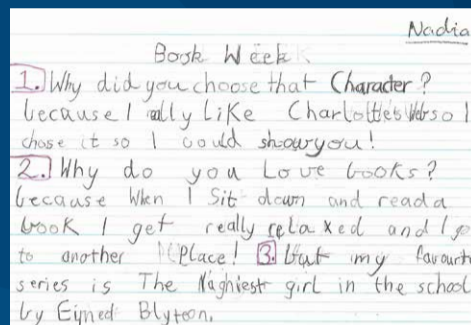 Nadia
Book Week
1. Why did you choose that Character?
because I really like Charlottes Web so I
chose it so I could show you!
2. Why do you Love books?
because When I Sit down and read a
book I get really relaxed and I go
to another Place! 3. but my favourite
series is The Naghiest girl in the school
by Eyned Blyteon.